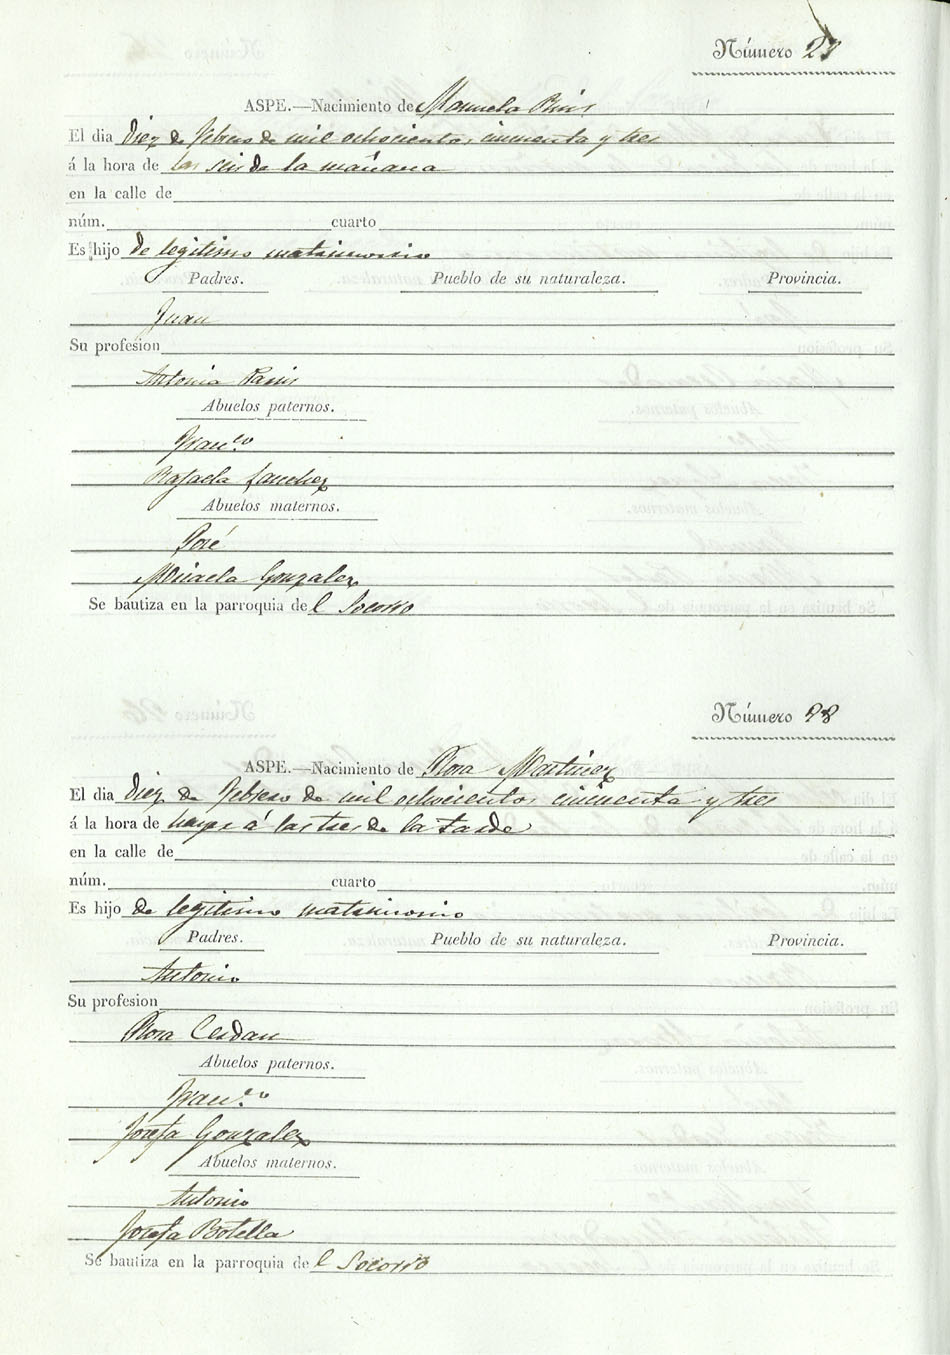 Número 27
ASPE.—Nacimiento de Manuela
El dia Diez de febrero de mil ochocientos cincuenta y tres
á la hora de las seis de la mañana
en la calle de
núm. cuarto
Es hijo de legitimo matrimonio
Padres. Pueblo de su naturaleza. Provincia.
Juan
Su profesion
Antonia
Abuelos paternos.
Fran.co
Rafaela Sanchez
Abuelos maternos.
José
Micaela Gonzalez
Se bautiza en la parroquia de l Socorro
Número 28
ASPE.—Nacimiento de Rosa Martinez
El dia Diez de febrero de mil ochocientos cincuenta y tres
á la hora de á las tres de la tarde
en la calle de
núm. cuarto
Es hijo de legitimo matrimonio
Padres. Pueblo de su naturaleza. Provincia.
Antonio
Su profesion
Rosa Cerdan
Abuelos paternos.
Fran.co
Josefa Gonzalez
Abuelos maternos.
Antonio
Josefa Botella
Se bautiza en la parroquia de l Socorro